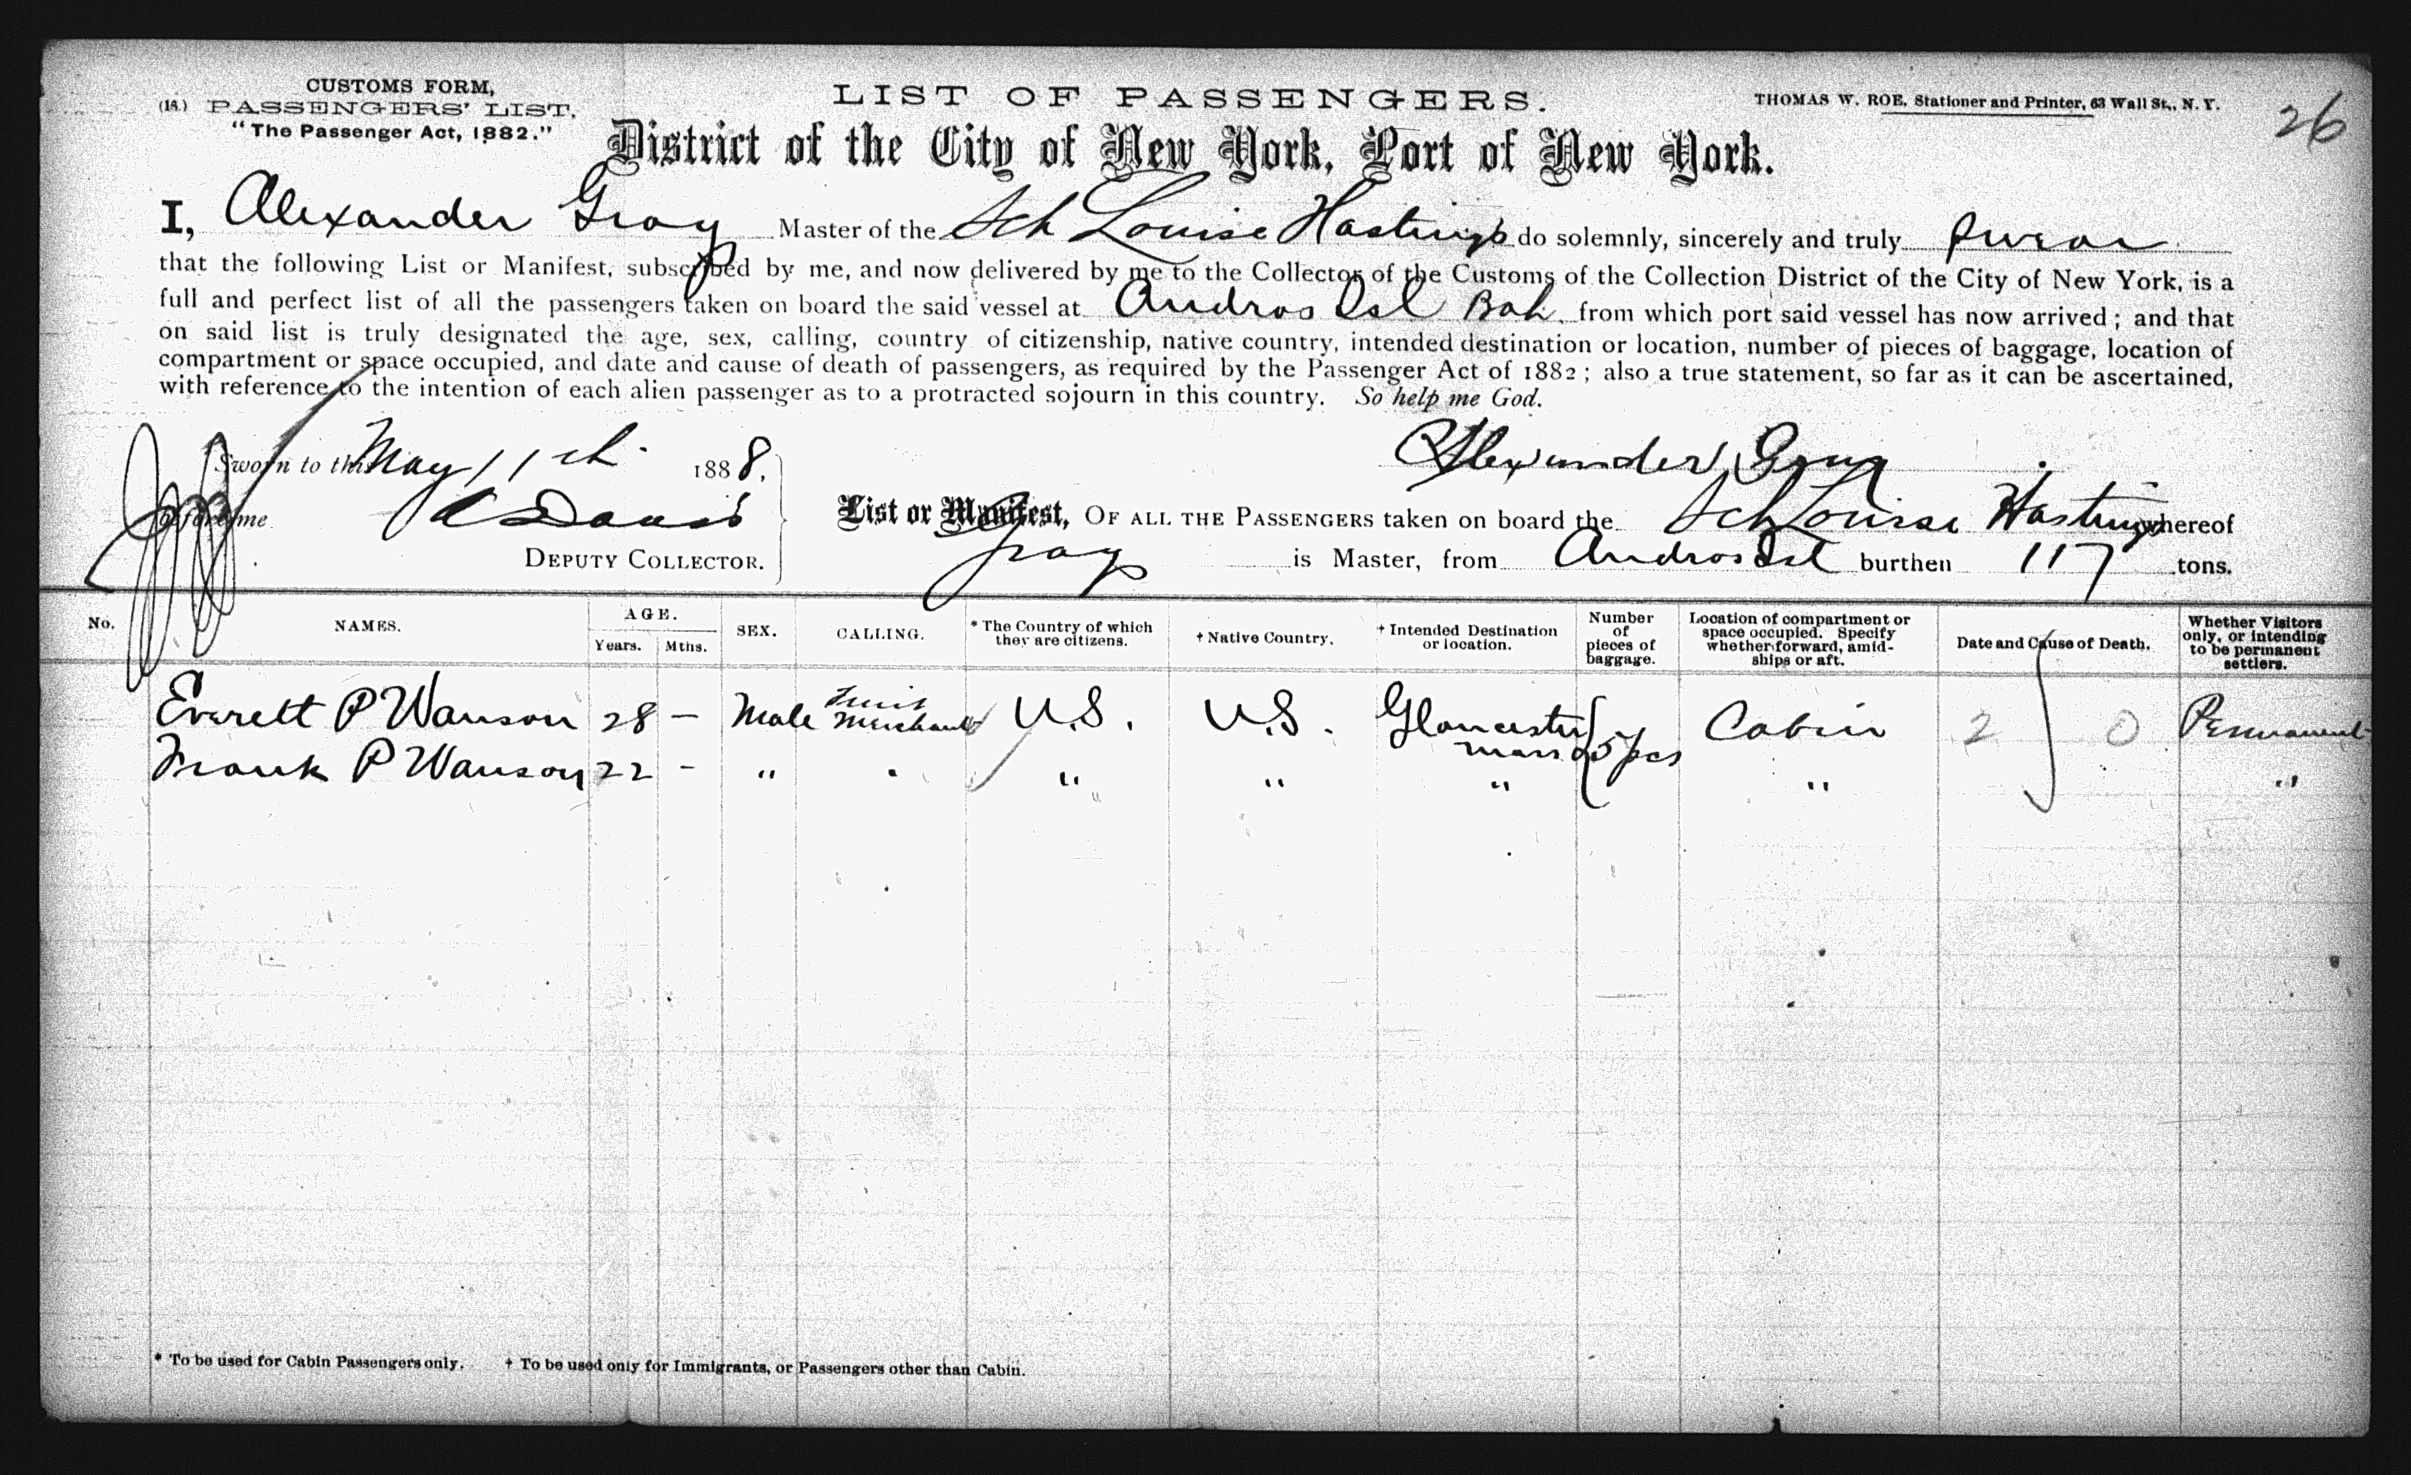 CUSTOMS FORM,
(18.) PASSENGERS' LIST.
"The Passenger Act, 1882."
LIST OF PASSENGERS.
THOMAS W. ROE, Stationer and Printer, 63 Wall St., N. Y.
26
District of the City of New York, Port of New York.
I, Alexander Gray Master of the Sch Louise Hastings do solemnly, sincerely and truly swear
that the following List or Manifest, subscribed by me, and now delivered by me to the Collector of the Customs of the Collection District of the City of New York, is a
full and perfect list of all the passengers taken on board the said vessel at Andros Isl Bah. from which port said vessel has now arrived; and that
on said list is truly designated the age, sex, calling, country of citizenship, native country, intended destination or location, number of pieces of baggage, location of
compartment or space occupied, and date and cause of death of passengers, as required by the Passenger Act of 1882; also a true statement, so far as it can be ascertained,
with reference to the intention of each alien passenger as to a protracted sojourn in this country. So help me God.
Sworn to this May 11th 1888.
Alexander Gray
before me A Davis
DEPUTY COLLECTOR.
List or Manifest, OF ALL THE PASSENGERS taken on board the Sch Louise Hastings whereof
Gray is Master, from Andros Isl burthen 117 tons.
No. NAMES. AGE. Years. Mths. SEX. CALLING. * The Country of which they are citizens. † Native Country. † Intended Destination or location. Number of pieces of baggage. Location of compartment or space occupied. Specify whether forward, amidships or aft. Date and Cause of Death. Whether Visitors only, or intending to be permanent settlers.
Everett P Wanson 28 – Male Fruit Merchant U.S. U.S. Gloucester Mass 25 pcs Cabin 2 0 Permanent
Frank P Wanson 22 - " " " " " " "
* To be used for Cabin Passengers only. † To be used only for Immigrants, or Passengers other than Cabin.